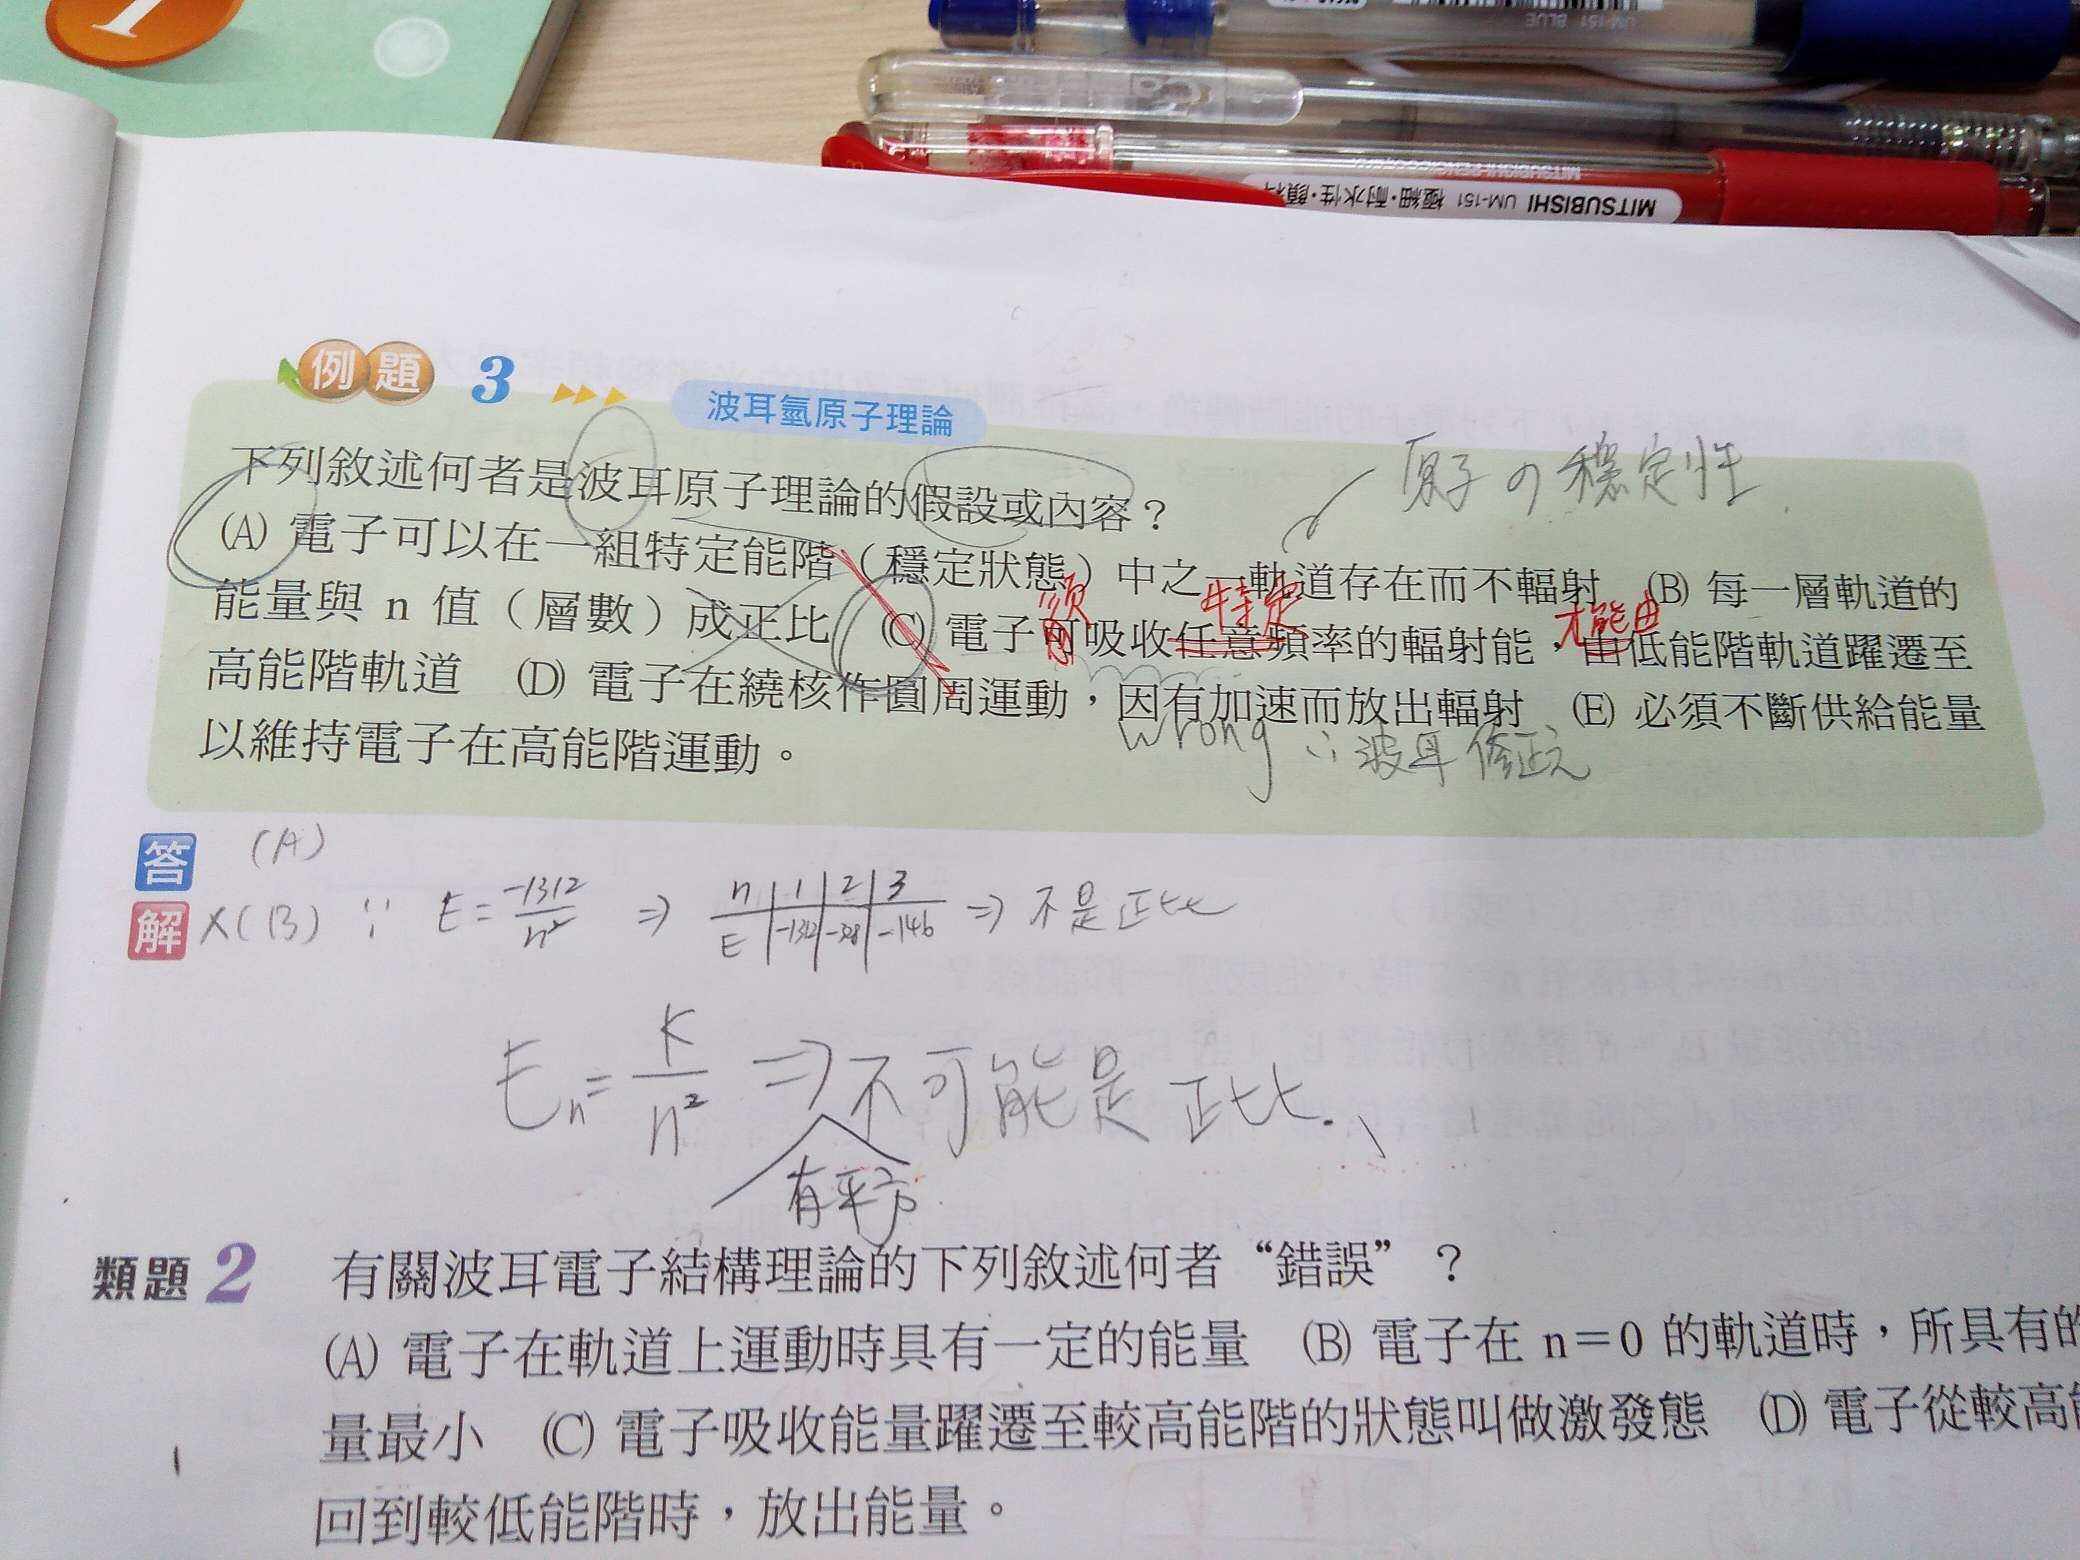 1
UM-151 BLUE
MITSUBISHI UM-151 極細·耐水性·顏料
例題 3
波耳氫原子理論
下列敘述何者是波耳原子理論的假設或內容？
原子の穩定性
(A) 電子可以在一組特定能階（穩定狀態）中之一軌道存在而不輻射 (B) 每一層軌道的
須 特定 才能由
能量與 n 值（層數）成正比 (C) 電子可吸收任意頻率的輻射能，由低能階軌道躍遷至
高能階軌道 (D) 電子在繞核作圓周運動，因有加速而放出輻射 (E) 必須不斷供給能量
wrong ∵波耳修正之
以維持電子在高能階運動。
答 (A)
解 X(B) ∵ E = -1312/n² ⇒ n 1 2 3 ⇒ 不是正比
E -1312 -328 -146
En = K/n² ⇒ 不可能是正比.
有平方
類題 2 有關波耳電子結構理論的下列敘述何者“錯誤”？
(A) 電子在軌道上運動時具有一定的能量 (B) 電子在 n＝0 的軌道時，所具有的
量最小 (C) 電子吸收能量躍遷至較高能階的狀態叫做激發態 (D) 電子從較高能
回到較低能階時，放出能量。